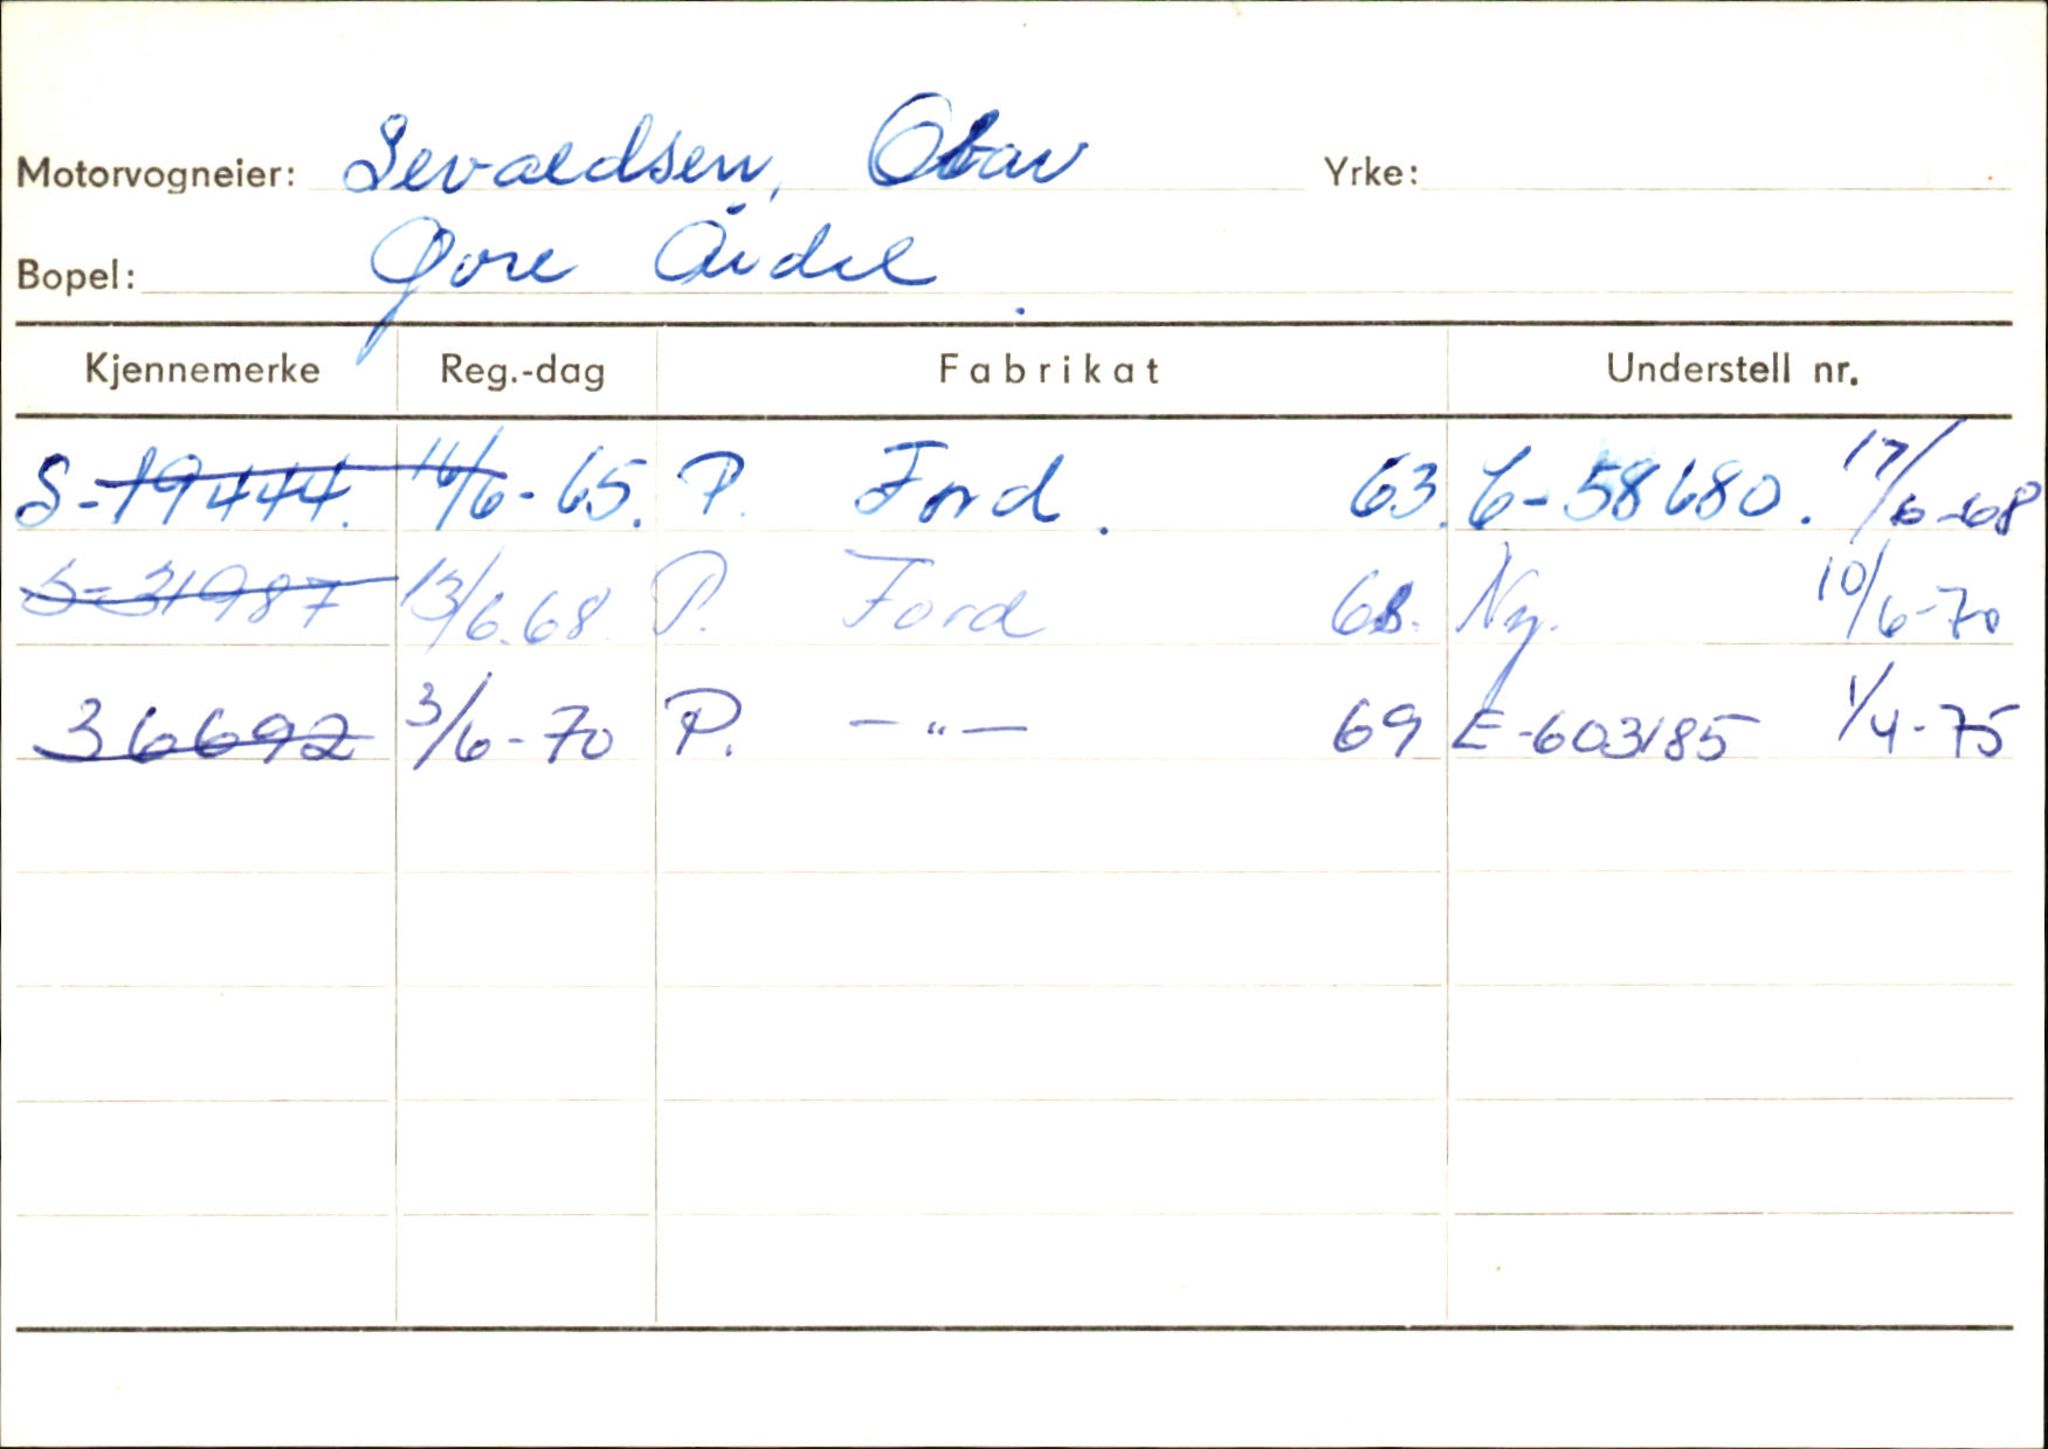 Motorvogneier: Sevaldsen, Olav Yrke:
Bopel: Øvre Årdal
Kjennemerke Reg.-dag Fabrikat Understell nr.
S-19444. 16/6-65. P. Ford. 63. 6-58680. 17/6-68
S-31987 13/6.68 P. Ford 68. Ny. 10/6-70
36692 3/6-70 P. -"- 69 E-603185 1/4-75